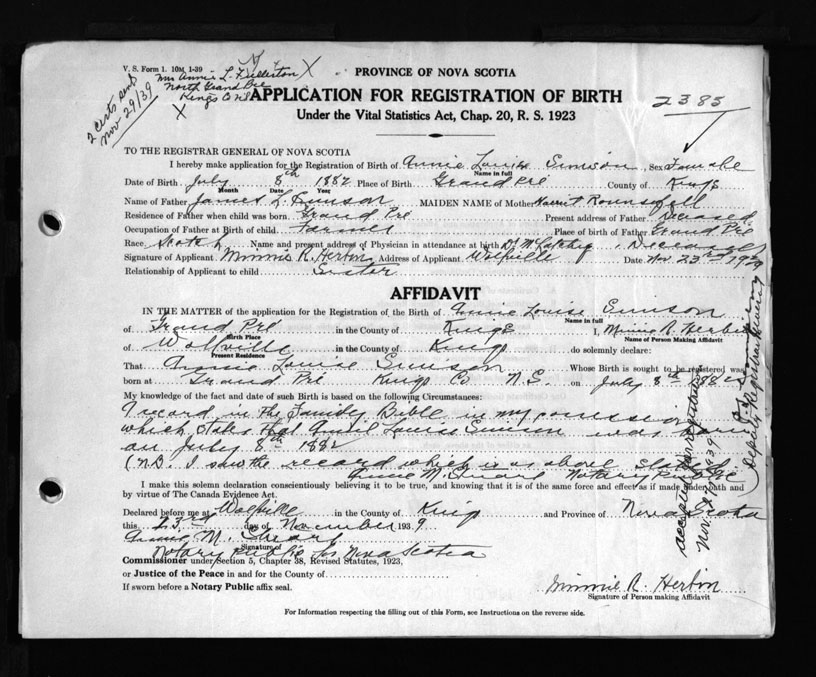 V. S. Form 1. 10M 1-39
Mrs Annie L. Fullerton X
North Grand Pre
Kings Co N.S.
X
2 certs sent
Nov 29/39
PROVINCE OF NOVA SCOTIA
APPLICATION FOR REGISTRATION OF BIRTH
2385
Under the Vital Statistics Act, Chap. 20, R. S. 1923
TO THE REGISTRAR GENERAL OF NOVA SCOTIA
I hereby make application for the Registration of Birth of Annie Louise Simson, Sex Female
Name in full
Date of Birth July 8th 1882 Place of Birth Grand Pré County of Kings
Month Date Year
Name of Father James L. Simson MAIDEN NAME of Mother Harriet Rounsefell
Residence of Father when child was born Grand Pré Present address of Father Deceased
Occupation of Father at Birth of child Farmer Place of birth of Father Grand Pré
Race Scotch Name and present address of Physician in attendance at birth Dr McLatchy, Deceased
Signature of Applicant Minnie R. Herbin Address of Applicant Wolfville Date Nov. 23rd 1939
Relationship of Applicant to child Sister
AFFIDAVIT
IN THE MATTER of the application for the Registration of the Birth of Annie Louise Simson
Name in full
of Grand Pré in the County of Kings I, Minnie R. Herbin
Birth Place Name of Person Making Affidavit
of Wolfville in the County of Kings do solemnly declare:
Present Residence
That Annie Louise Simson Whose Birth is sought to be registered was
born at Grand Pré Kings Co. N.S. on July 8th 1882
My knowledge of the fact and date of such Birth is based on the following Circumstances:
A record in the Family Bible in my possession
which states that Annie Louise Simson was born
on July 8th 1882
(N.B. I saw the record which is as above stated
M. Stuart Notary Public)
I make this solemn declaration conscientiously believing it to be true, and knowing that it is of the same force and effect as if made under oath and
by virtue of The Canada Evidence Act.
Declared before me at Wolfville in the County of Kings and Province of Nova Scotia
this 23rd day of November 1939
M. Stuart
Signature of
Notary Public for Nova Scotia
Commissioner under Section 5, Chapter 38, Revised Statutes, 1923,
or Justice of the Peace in and for the County of
If sworn before a Notary Public affix seal.
Minnie R. Herbin
Signature of Person making Affidavit
For Information respecting the filling out of this Form, see Instructions on the reverse side.
accepted for registration
Deputy Registrar General